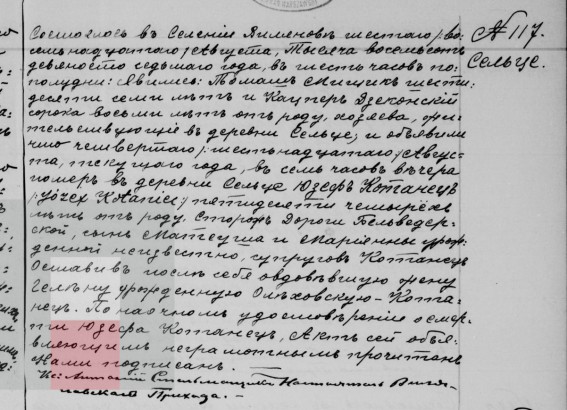 Состоялось въ Селеніи Яйменовъ шестаго /во-
семьнадцатаго/ Августа, Тысяча восемьсотъ
девяносто седьмаго года, въ шесть часовъ по-
полудни: Явились: Томашъ Мищикъ шести-
десяти семи лѣтъ и Кацперъ Дзеконскій
сорока восьми лѣтъ отъ роду, хозяева, жи-
тельствующіе въ деревни Сельце, и объявили
что четвертаго /шестьнадцатаго/ Авгус-
та, текущаго года, въ семь часовъ вечера
померъ въ деревни Сельце Юзефъ Котанецъ
/Józef Kotaniec/ пятидесяти четырехъ
лѣтъ отъ роду, Сторожъ Дороги Бельведер-
ской, сынъ Матеуша и Маріянны урож-
денной неизвѣстно, супруговъ Котанецъ
Оставивъ послѣ себе овдовѣвшую жену
Гелѣну урожденную Олѣховскую-Кота-
нецъ. По наочномъ удостовѣреніи о смер-
ти Юзефа Котанецъ, Актъ сей объя-
вляющимъ неграмотнымъ прочитанъ
Нами подписанъ. —
Кс: Антоній Настоятель Виля-
новскаго Прихода. —
№ 117.
Сельце.